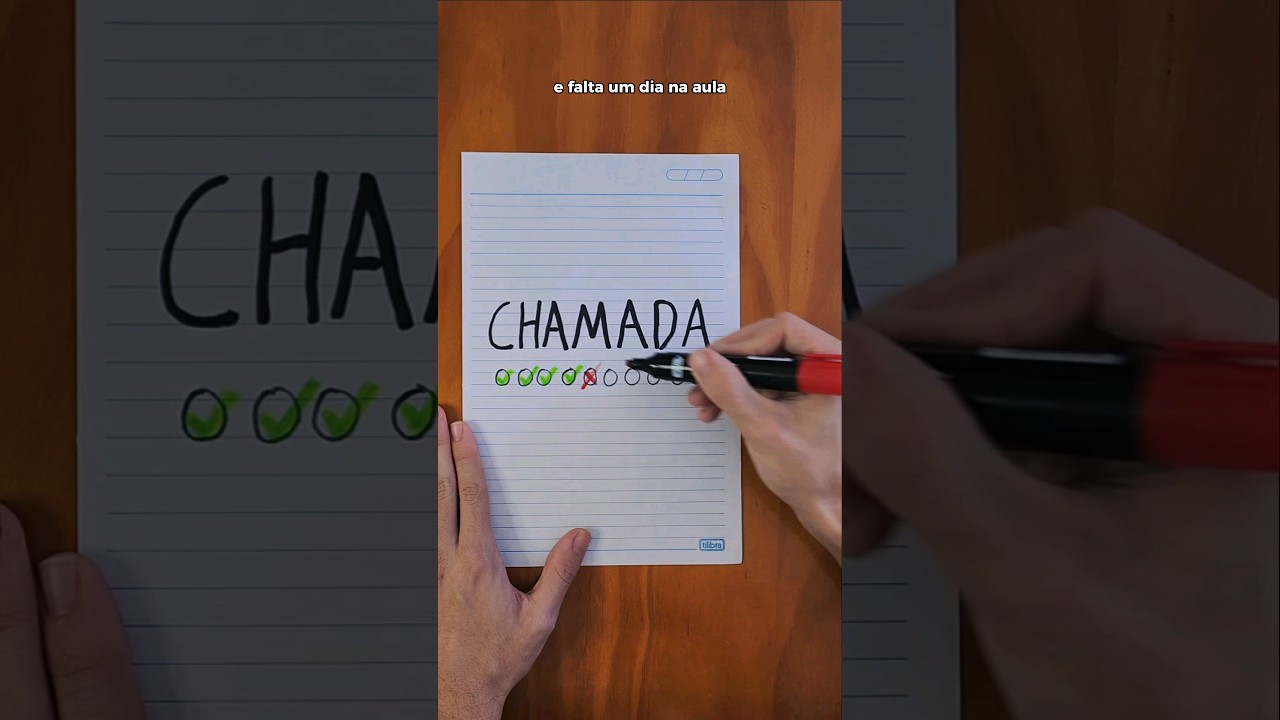 e falta um dia na aula
CHAMADA
tilibra